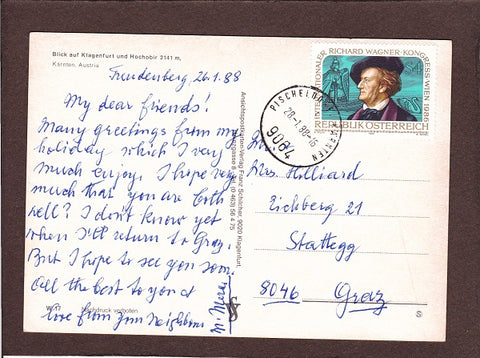 Blick auf Klagenfurt und Hochobir 2141 m,
Kärnten, Austria
Freudenberg 26.1.88
My dear friends!
Many greetings from my
holiday which I very
much enjoy. I hope very
much that you are both
well? I don't know yet
when I'll return to Graz.
But I hope to see you soon.
All the best to you at
love from your Neighbour
Ansichtspostkarten-Verlag Franz Schilcher, 9020 Klagenfurt,
8 (0 463) 56 4 75
Nachdruck verboten
INTERNATIONALER RICHARD WAGNER-KONGRESS WIEN 1986
REPUBLIK ÖSTERREICH
PISCHELDORF, KÄRNTEN
9064
Mrs. Hilliard
Eichberg 21
Stattegg
8046 Graz
S